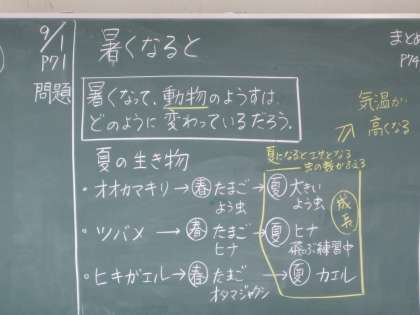 9/1
P71
問題
暑くなると
暑くなって、動物のようすは、
どのように変わっているだろう。
夏の生き物
夏になるとエサとなる
虫の数がふえる
気温が
高くなる
まとめ
P74
・オオカマキリ→春たまご→夏大きい
よう虫 よう虫
・ツバメ→春たまご→夏ヒナ
ヒナ 飛ぶ練習中
・ヒキガエル→春たまご→夏カエル
オタマジャクシ
成長